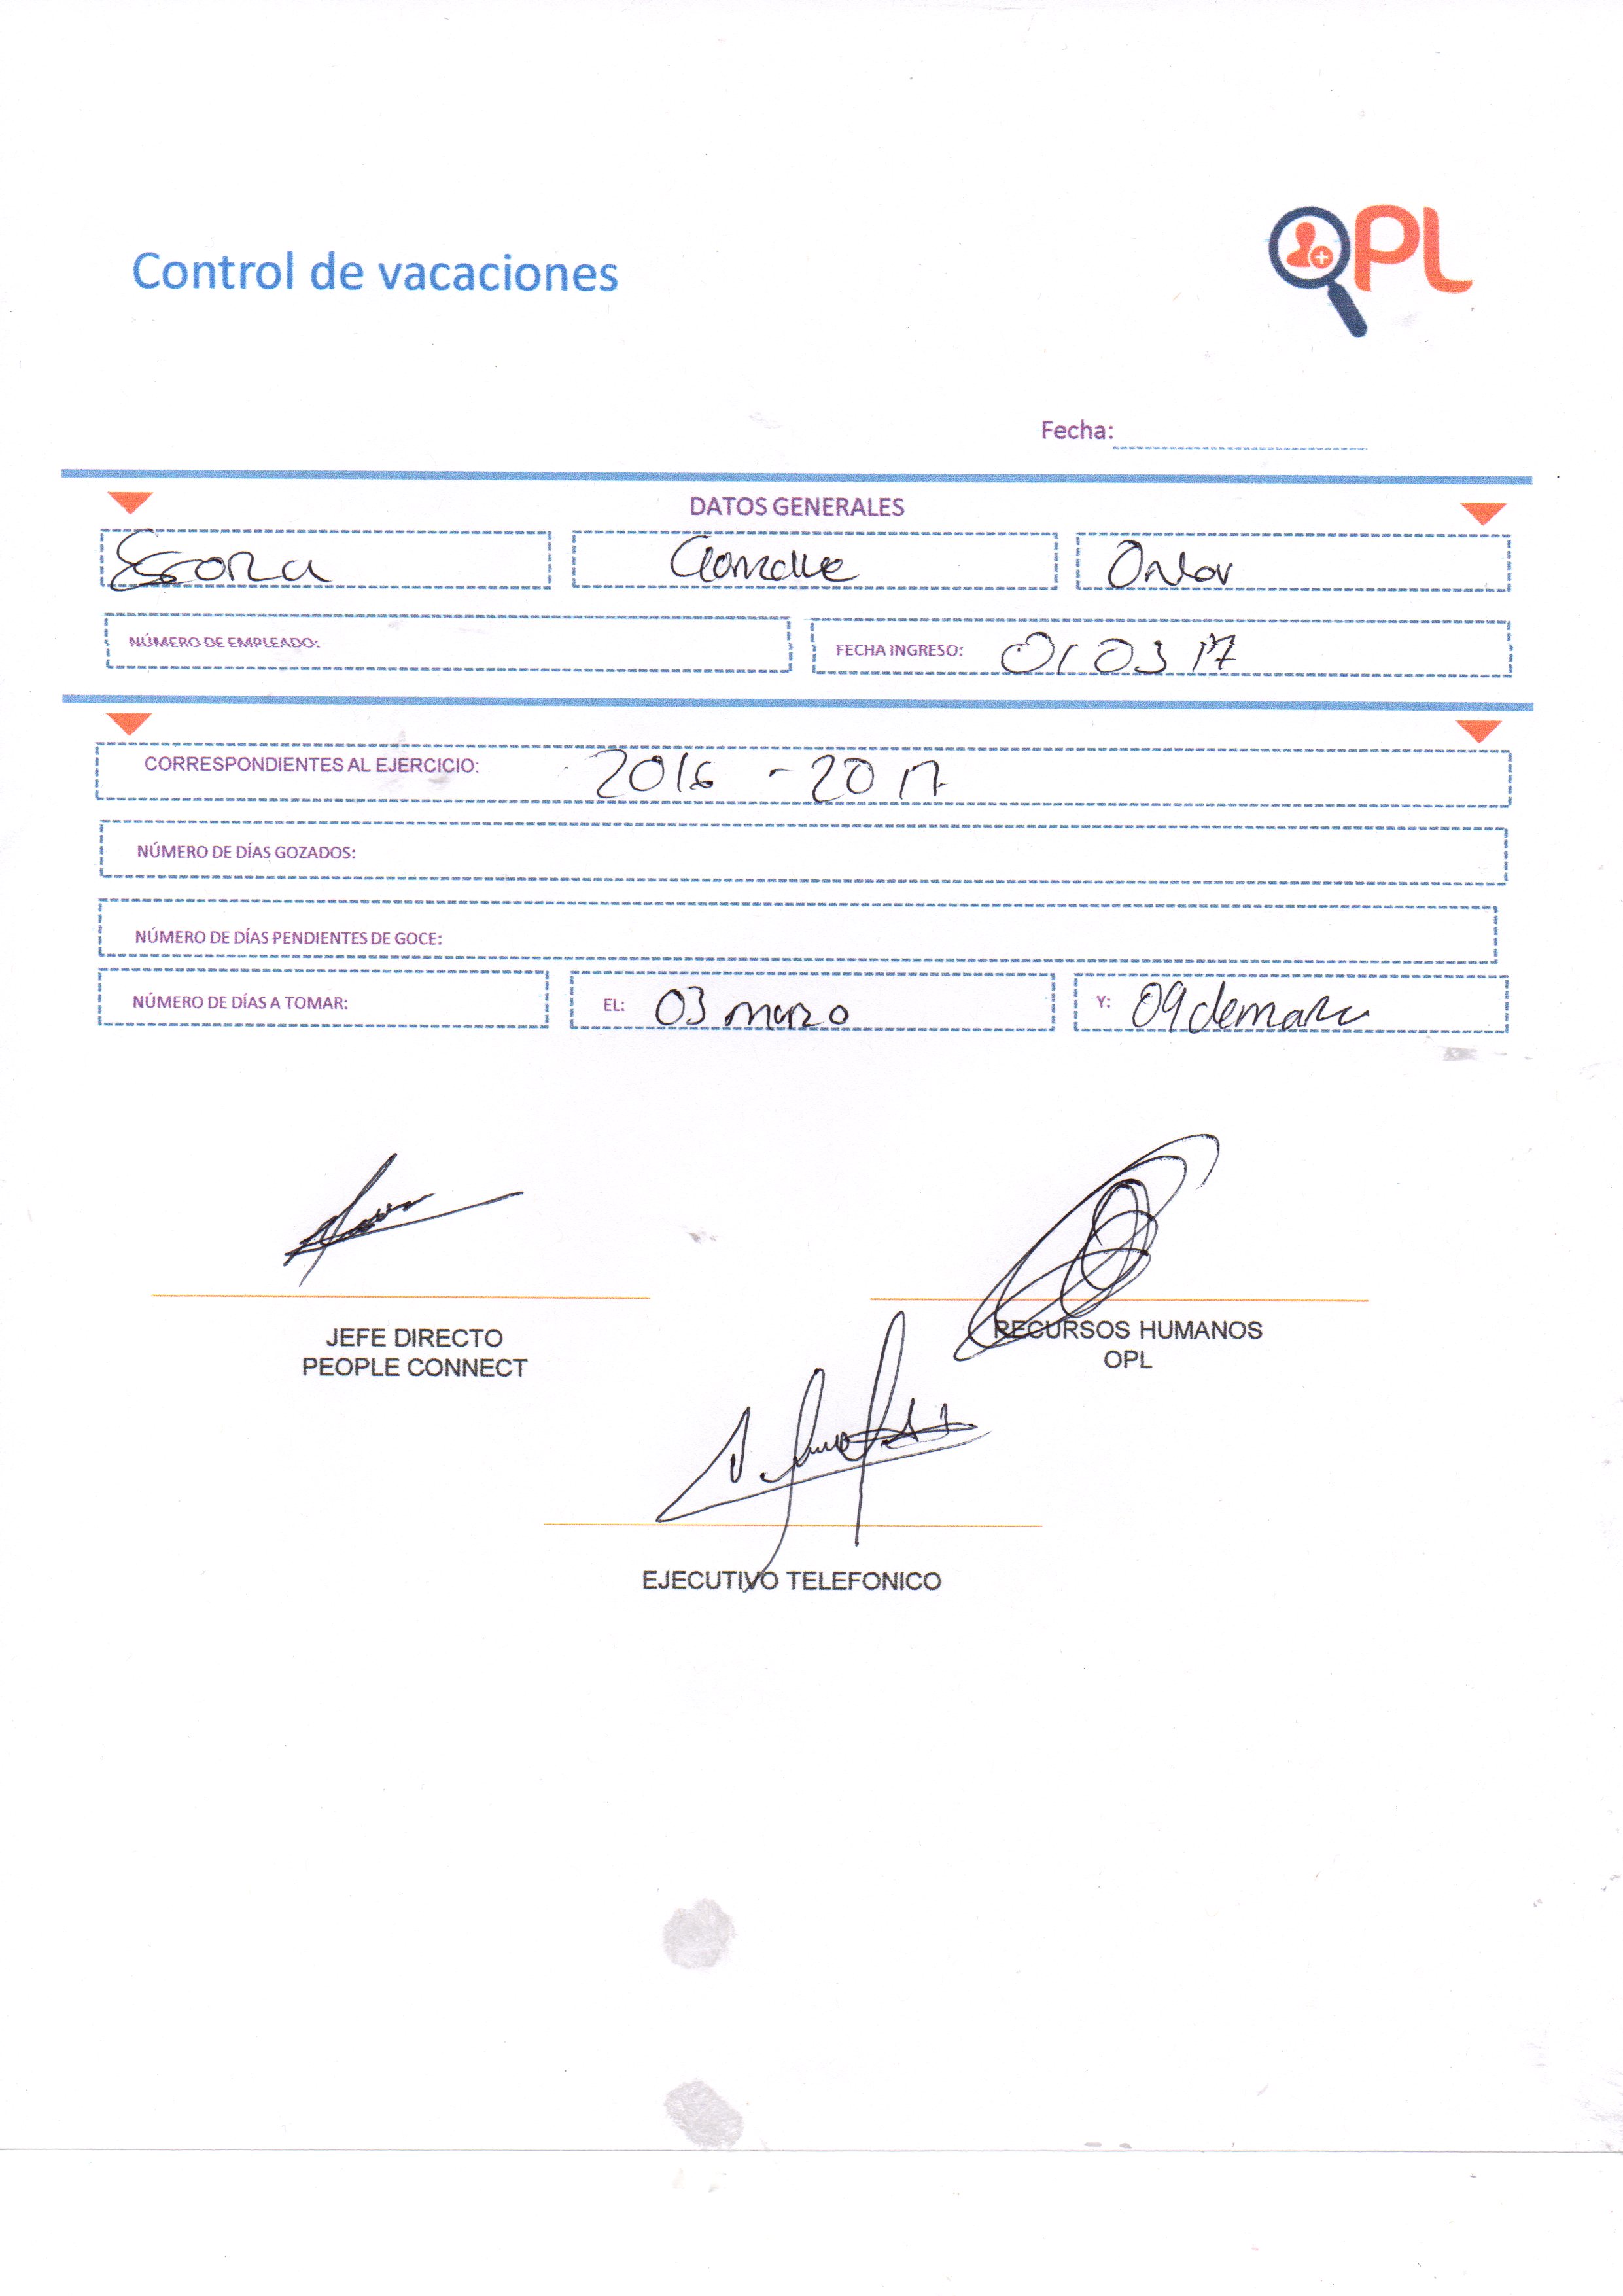 Control de vacaciones
OPL
Fecha:
DATOS GENERALES
NÚMERO DE EMPLEADO:
FECHA INGRESO: 01 03 17
CORRESPONDIENTES AL EJERCICIO: 2016 - 2017
NÚMERO DE DÍAS GOZADOS:
NÚMERO DE DÍAS PENDIENTES DE GOCE:
NÚMERO DE DÍAS A TOMAR: EL: 03 marzo Y: 09 de marzo
JEFE DIRECTO
PEOPLE CONNECT
RECURSOS HUMANOS
OPL
EJECUTIVO TELEFONICO